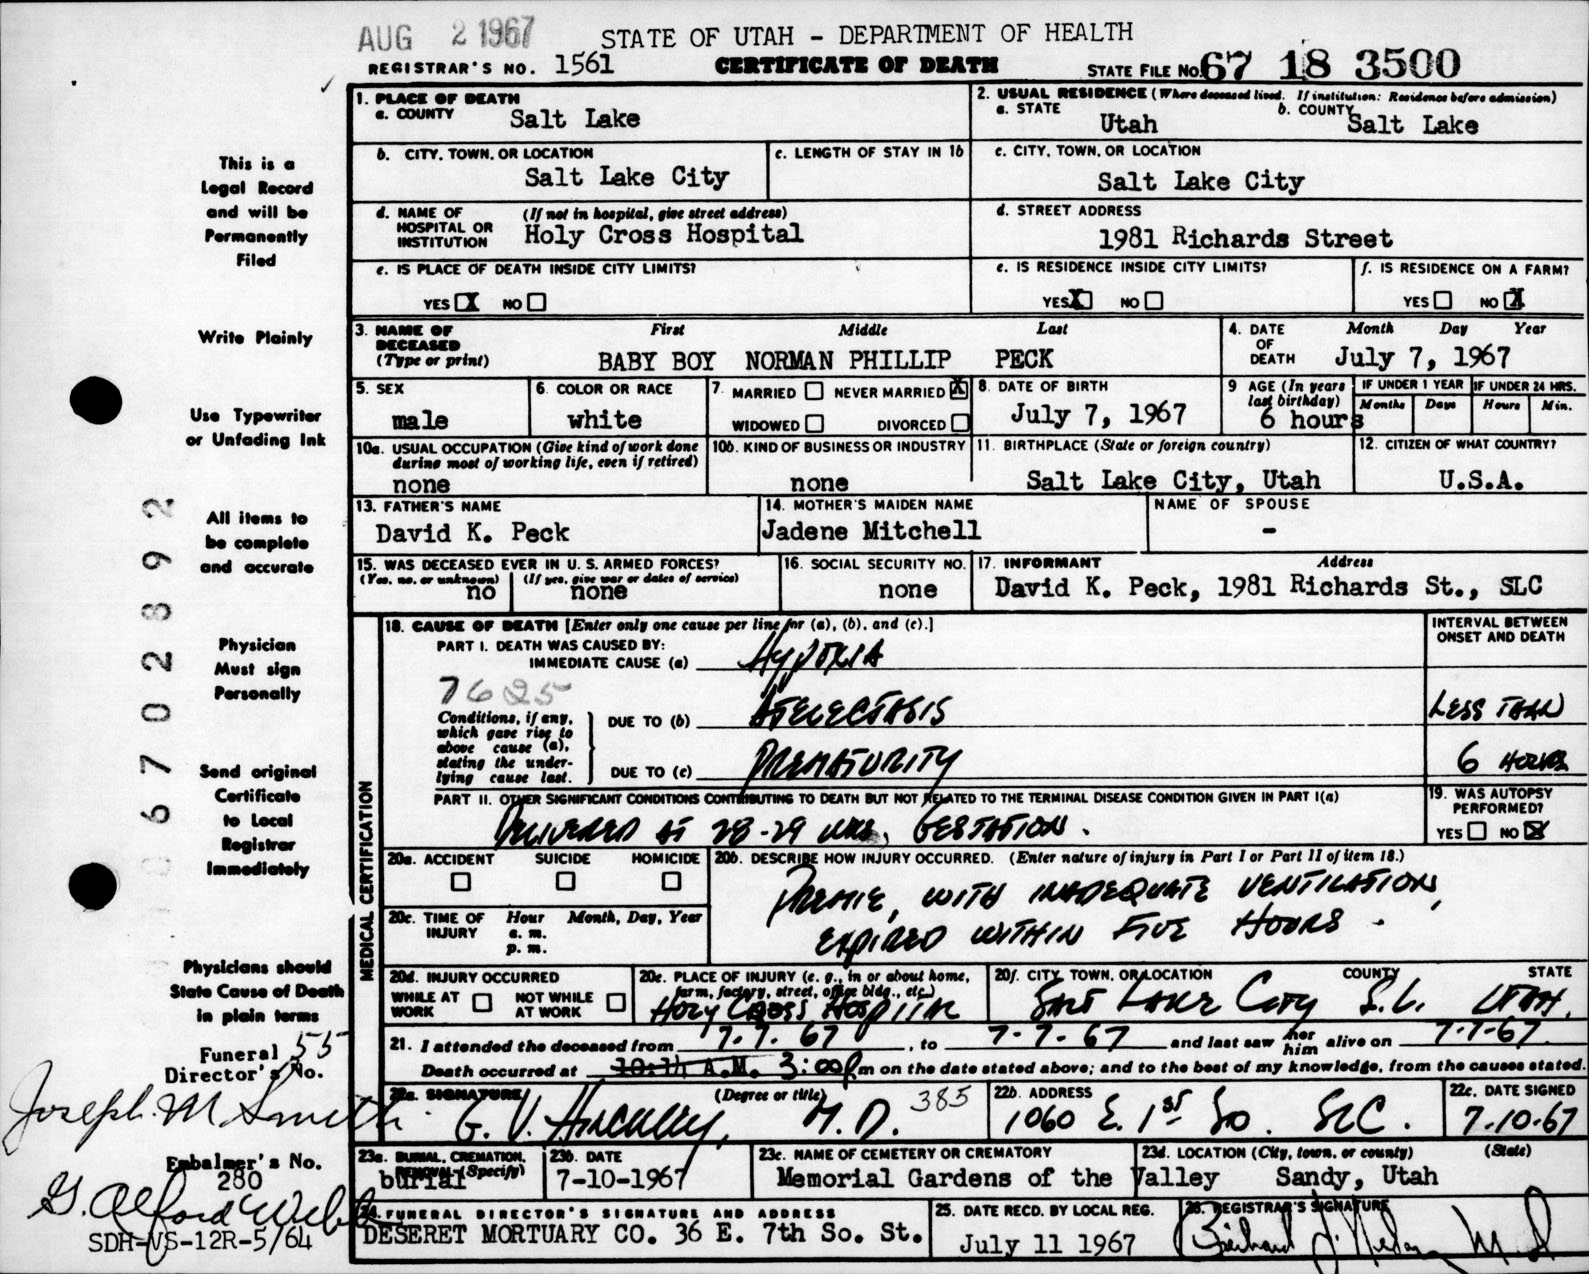 AUG 2 1967
STATE OF UTAH - DEPARTMENT OF HEALTH
REGISTRAR'S NO. 1561
CERTIFICATE OF DEATH
STATE FILE NO. 67 18 3500
1. PLACE OF DEATH
a. COUNTY Salt Lake
2. USUAL RESIDENCE (Where deceased lived. If institution: Residence before admission)
a. STATE Utah
b. COUNTY Salt Lake
b. CITY, TOWN, OR LOCATION
Salt Lake City
c. LENGTH OF STAY IN 1b
c. CITY, TOWN, OR LOCATION
Salt Lake City
d. NAME OF HOSPITAL OR INSTITUTION (If not in hospital, give street address)
Holy Cross Hospital
d. STREET ADDRESS
1981 Richards Street
e. IS PLACE OF DEATH INSIDE CITY LIMITS?
YES X NO
e. IS RESIDENCE INSIDE CITY LIMITS?
YES X NO
f. IS RESIDENCE ON A FARM?
YES NO X
3. NAME OF DECEASED (Type or print)
First Middle Last
BABY BOY NORMAN PHILLIP PECK
4. DATE OF DEATH Month Day Year
July 7, 1967
5. SEX
male
6. COLOR OR RACE
white
7. MARRIED NEVER MARRIED X
WIDOWED DIVORCED
8. DATE OF BIRTH
July 7, 1967
9 AGE (In years last birthday)
6 hours
IF UNDER 1 YEAR
Months Days
IF UNDER 24 HRS.
Hours Min.
10a. USUAL OCCUPATION (Give kind of work done during most of working life, even if retired)
none
10b. KIND OF BUSINESS OR INDUSTRY
none
11. BIRTHPLACE (State or foreign country)
Salt Lake City, Utah
12. CITIZEN OF WHAT COUNTRY?
U.S.A.
13. FATHER'S NAME
David K. Peck
14. MOTHER'S MAIDEN NAME
Jadene Mitchell
NAME OF SPOUSE
-
15. WAS DECEASED EVER IN U. S. ARMED FORCES?
(Yes, no, or unknown) (If yes, give war or dates of service)
no none
16. SOCIAL SECURITY NO.
none
17. INFORMANT Address
David K. Peck, 1981 Richards St., SLC
MEDICAL CERTIFICATION
18. CAUSE OF DEATH [Enter only one cause per line for (a), (b), and (c).]
PART I. DEATH WAS CAUSED BY:
IMMEDIATE CAUSE (a) HYPOXIA
7625
Conditions, if any, which gave rise to above cause (a), stating the underlying cause last.
DUE TO (b) ATELECTASIS
DUE TO (c) PREMATURITY
INTERVAL BETWEEN ONSET AND DEATH
LESS THAN
6 HOURS
PART II. OTHER SIGNIFICANT CONDITIONS CONTRIBUTING TO DEATH BUT NOT RELATED TO THE TERMINAL DISEASE CONDITION GIVEN IN PART I(a)
DELIVERED AT 28-29 WKS. GESTATION.
19. WAS AUTOPSY PERFORMED?
YES NO X
20a. ACCIDENT SUICIDE HOMICIDE
20b. DESCRIBE HOW INJURY OCCURRED. (Enter nature of injury in Part I or Part II of item 18.)
PREMIE, WITH INADEQUATE VENTILATION,
EXPIRED WITHIN FIVE HOURS.
20c. TIME OF INJURY Hour Month, Day, Year
a. m.
p. m.
20d. INJURY OCCURRED
WHILE AT WORK NOT WHILE AT WORK
20e. PLACE OF INJURY (e. g., in or about home, farm, factory, street, office bldg., etc.)
HOLY CROSS HOSPITAL
20f. CITY, TOWN, OR LOCATION COUNTY STATE
SALT LAKE CITY S.L. UTAH.
21. I attended the deceased from 7.7.67, to 7-7-67 and last saw her him alive on 7-7-67.
Death occurred at 10:14 A.M. 3:00 p m on the date stated above; and to the best of my knowledge, from the causes stated.
22a. SIGNATURE (Degree or title)
G. V. Hinckley, M.D. 385
22b. ADDRESS
1060 E. 1st So. SLC.
22c. DATE SIGNED
7-10-67
23a. BURIAL, CREMATION, REMOVAL (Specify)
burial
23b. DATE
7-10-1967
23c. NAME OF CEMETERY OR CREMATORY
Memorial Gardens of the Valley
23d. LOCATION (City, town, or county) (State)
Sandy, Utah
24. FUNERAL DIRECTOR'S SIGNATURE AND ADDRESS
DESERET MORTUARY CO. 36 E. 7th So. St.
25. DATE RECD. BY LOCAL REG.
July 11 1967
26. REGISTRAR'S SIGNATURE
This is a
Legal Record
and will be
Permanently
Filed
Write Plainly
Use Typewriter
or Unfading Ink
All items to
be complete
and accurate
Physician
Must sign
Personally
Send original
Certificate
to Local
Registrar
Immediately
Physicians should
State Cause of Death
in plain terms
Funeral 55
Director's No.
Joseph M Smith
Embalmer's No.
280
G. Alford
SDH-VS-12R-5/64
6702892